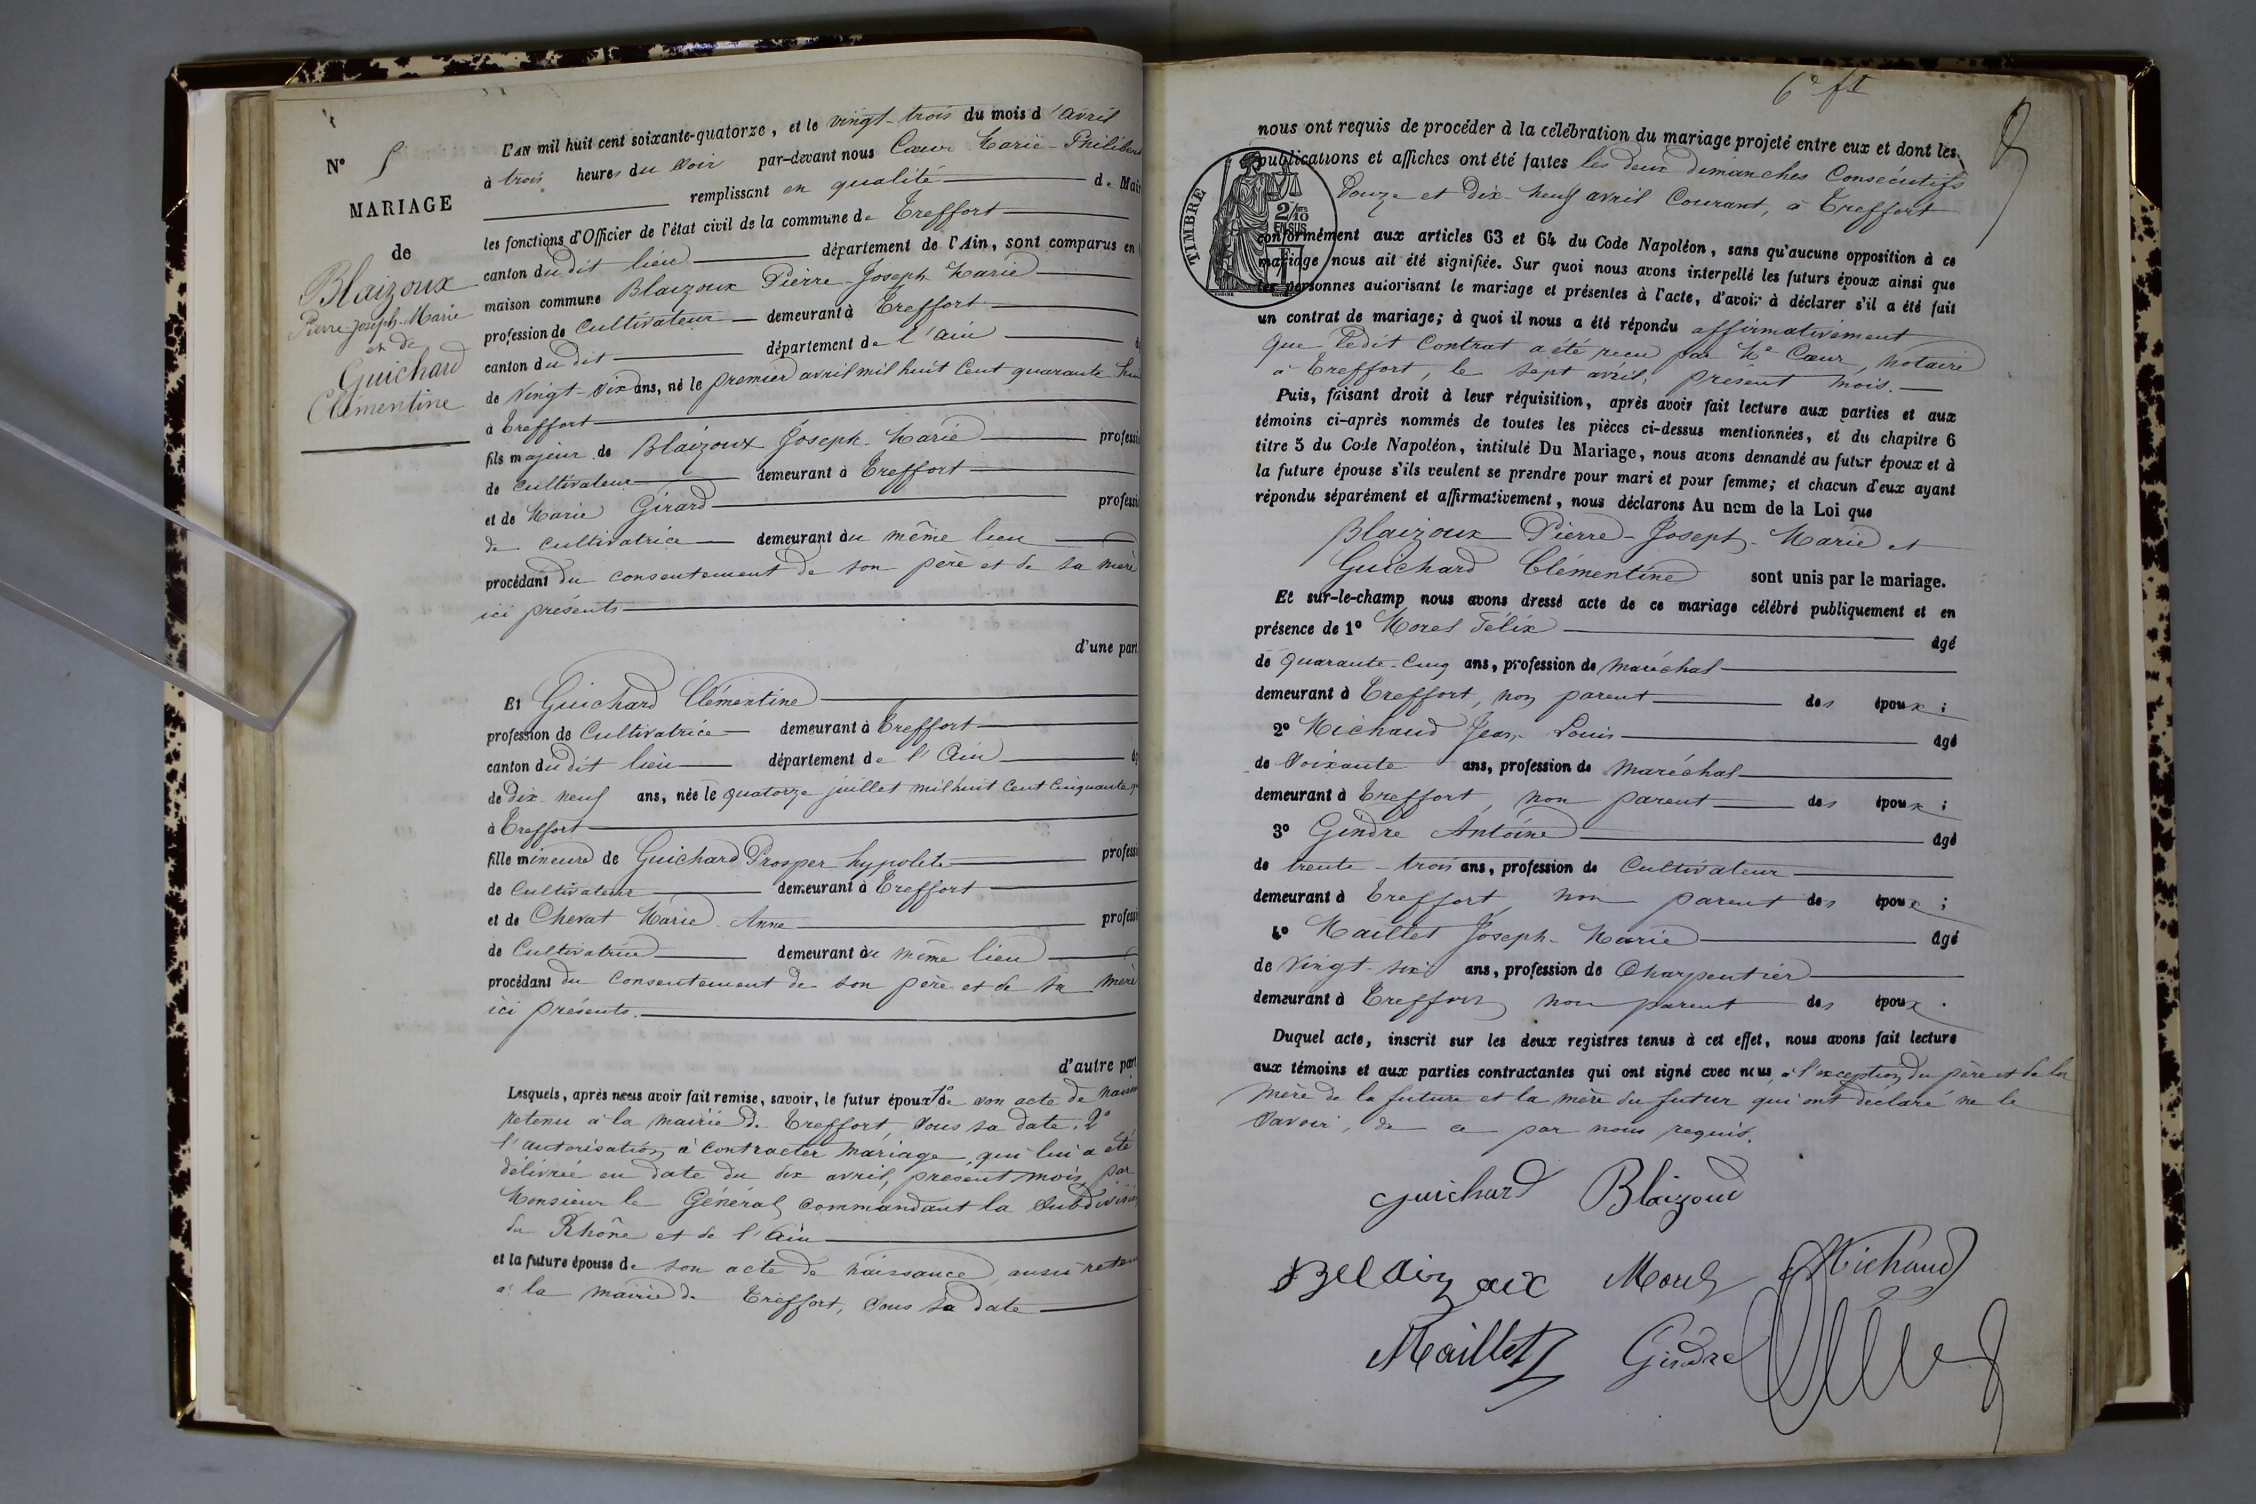 N° 5
MARIAGE
de
Blaizoux
Pierre-Joseph-Marie
et de
Guichard
Clémentine
L'AN mil huit cent soixante-quatorze, et le vingt-trois du mois d'avril
à trois heures du soir par-devant nous Cœur Marie-Philibert
remplissant en qualité de Mair
les fonctions d'Officier de l'état civil de la commune de Treffort
canton du dit lieu département de l'Ain, sont comparus en
maison commune Blaizoux Pierre-Joseph-Marie
profession de Cultivateur demeurant à Treffort
canton du dit département de l'Ain
de vingt-six ans, né le premier avril mil huit cent quarante huit
à Treffort
fils majeur de Blaizoux Joseph-Marie professi
de cultivateur demeurant à Treffort
et de Marie Girard professi
de cultivatrice demeurant au même lieu
procédant du consentement de son père et de sa mère
ici présents
d'une part
Et Guichard Clémentine
profession de Cultivatrice demeurant à Treffort
canton du dit lieu département de l'Ain
de dix-neuf ans, née le quatorze juillet mil huit cent cinquante
à Treffort
fille mineure de Guichard Prosper hypolite professi
de Cultivateur demeurant à Treffort
et de Chevat Marie-Anne professi
de Cultivatrice demeurant au même lieu
procédant du consentement de son père et de sa mère
ici présents.
d'autre part
Lesquels, après nous avoir fait remise, savoir, le futur époux 1° de son acte de
retenu à la mairie de Treffort, sous sa date. 2°
l'autorisation à contracter mariage, qui lui a été
délivrée en date du dix avril, présent mois, par
Monsieur le Général commandant la Subdivision
du Rhône et de l'Ain
et la future épouse de son acte de naissance, aussi retenu
à la mairie de Treffort, sous sa date
nous ont requis de procéder à la célébration du mariage projeté entre eux et dont les
publications et affiches ont été faites les deux dimanches Consécutifs
Douze et Dix-neuf avril Courant, à Treffort
TIMBRE
2/10
EN SUS
conformément aux articles 63 et 64 du Code Napoléon, sans qu'aucune opposition à ce
mariage nous ait été signifiée. Sur quoi nous avons interpellé les futurs époux ainsi que
les personnes autorisant le mariage et présentes à l'acte, d'avoir à déclarer s'il a été fait
un contrat de mariage; à quoi il nous a été répondu affirmativement
que ledit Contrat a été reçu par Me Cœur, notaire
à Treffort, le sept avril, présent mois.
Puis, faisant droit à leur réquisition, après avoir fait lecture aux parties et aux
témoins ci-après nommés de toutes les pièces ci-dessus mentionnées, et du chapitre 6
titre 5 du Code Napoléon, intitulé Du Mariage, nous avons demandé au futur époux et à
la future épouse s'ils veulent se prendre pour mari et pour femme; et chacun d'eux ayant
répondu séparément et affirmativement, nous déclarons Au nom de la Loi que
Blaizoux Pierre-Joseph-Marie et
Guichard Clémentine sont unis par le mariage.
Et sur-le-champ nous avons dressé acte de ce mariage célébré publiquement et en
présence de 1° Morel Félix âgé
de quarante-cinq ans, profession de maréchal
demeurant à Treffort, non parent des époux;
2° Michaud Jean-Louis âgé
de soixante ans, profession de maréchal
demeurant à Treffort, non parent des époux;
3° Gindre Antoine âgé
de trente-trois ans, profession de Cultivateur
demeurant à Treffort non parent des époux;
4° Maillet Joseph-Marie âgé
de vingt-six ans, profession de Charpentier
demeurant à Treffort, non parent des époux.
Duquel acte, inscrit sur les deux registres tenus à cet effet, nous avons fait lecture
aux témoins et aux parties contractantes qui ont signé avec nous, à l'exception du père et de la
mère de la future et la mère du futur qui ont déclaré ne le
savoir, de ce par nous requis.
Guichard Blaizoud
Morel Michaud
Maillet Gindre